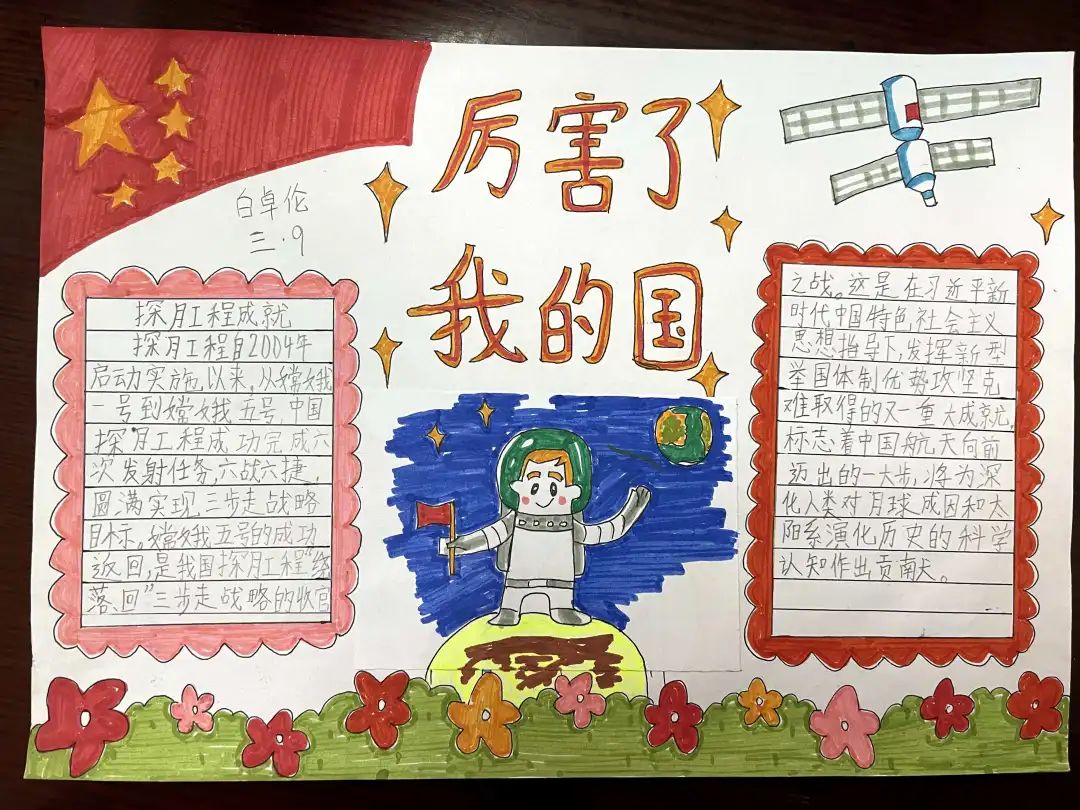 厉害了
我的国
白卓伦
三.9
探月工程成就
探月工程自2004年
启动实施以来,从嫦娥
一号到嫦娥五号,中国
探月工程成功完成六
次发射任务,六战六捷,
圆满实现三步走战略
目标,嫦娥五号的成功
返回,是我国探月工程“绕
落、回”三步走战略的收官
之战。这是在习近平新
时代中国特色社会主义
思想指导下,发挥新型
举国体制优势攻坚克
难取得的又一重大成就,
标志着中国航天向前
迈出的一大步,将为深
化人类对月球成因和太
阳系演化历史的科学
认知作出贡献。